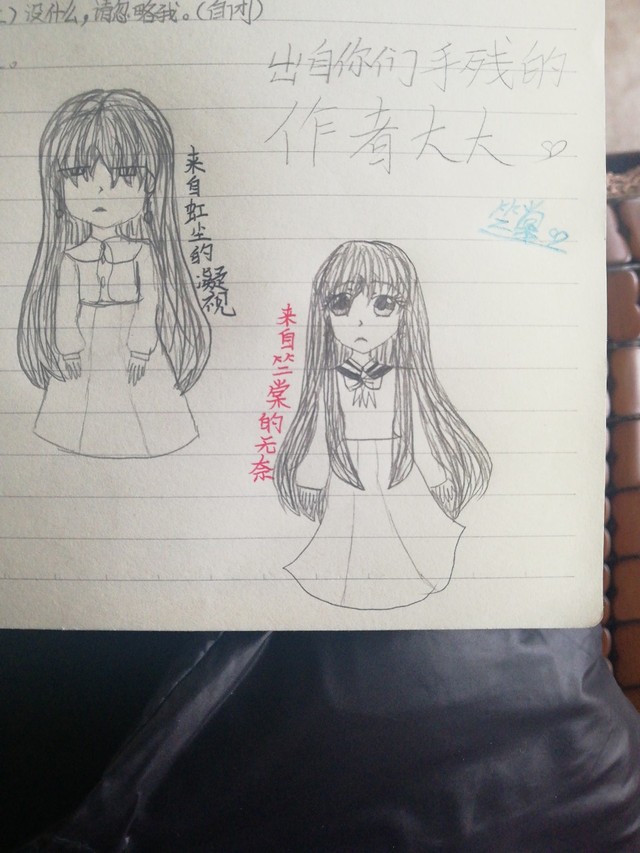 没什么，请忽略我。（自闭）
出自你们手残的
作者大大
竺棠
来自虹尘的凝视
来自竺棠的无奈